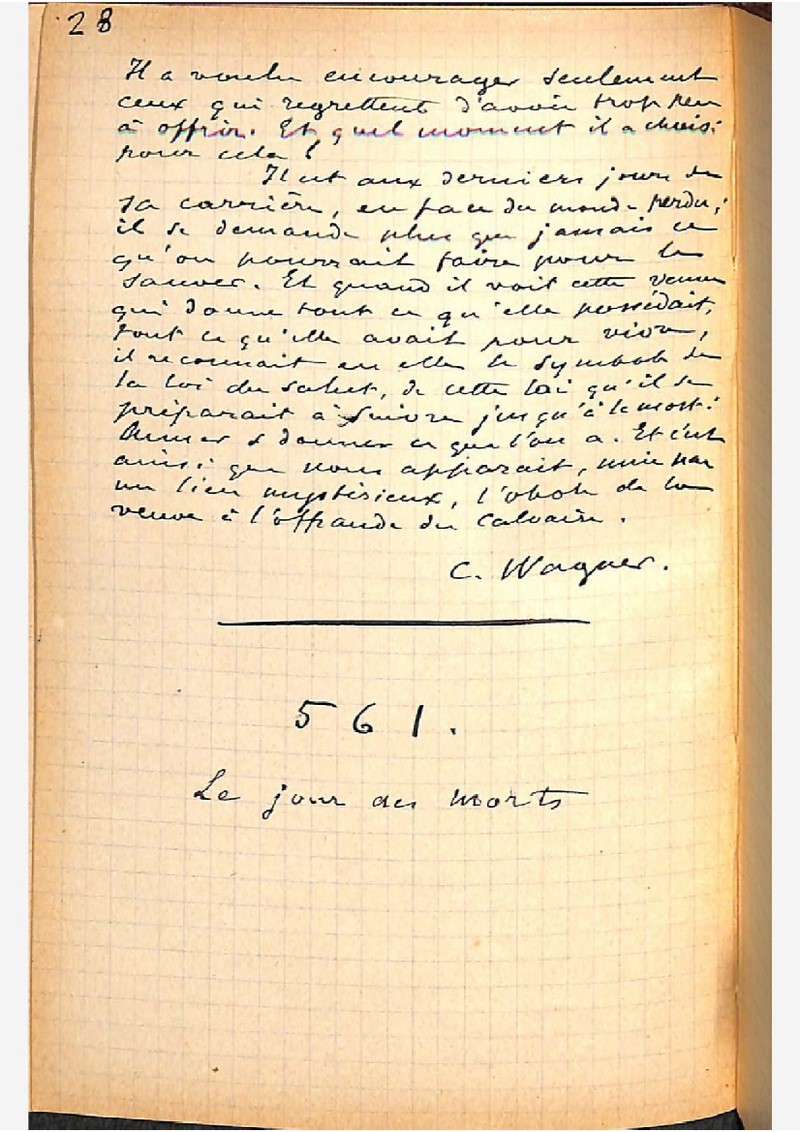 28
Il a voulu encourager seulement
ceux qui regrettent d'avoir trop peu
à offrir. Et quel moment il a choisi
pour cela !
Il est aux derniers jours de
sa carrière, en face du monde perdu ;
il se demande plus que jamais ce
qu'on pourrait faire pour le
sauver. Et quand il voit cette veuve
qui donne tout ce qu'elle possédait,
tout ce qu'elle avait pour vivre,
il reconnait en elle le symbole de
la loi du salut, de cette loi qu'il se
préparait à suivre jusqu'à la mort :
donner ce que l'on a. Et c'est
ainsi que nous apparait, unie par
un lien mystérieux, l'obole de la
veuve à l'offrande du Calvaire.
C. Wagner.
561.
Le jour des morts